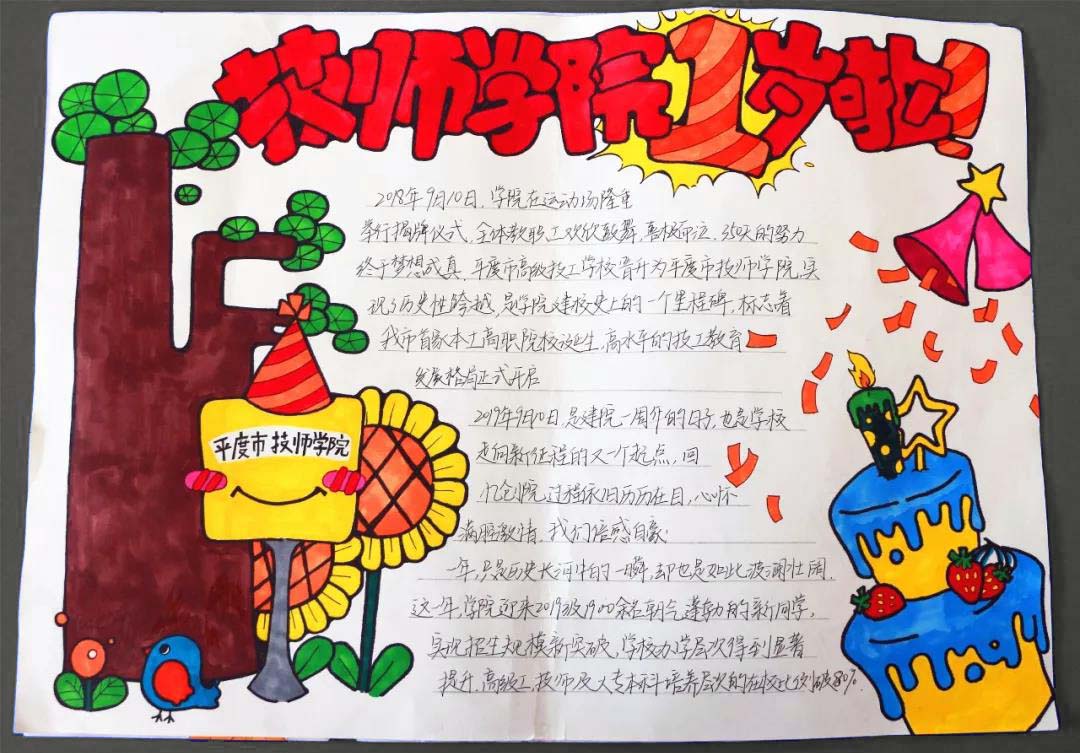 技师学院1岁啦!
2018年9月10日,学院在运动场隆重
举行揭牌仪式,全体教职工欢欣鼓舞,喜极而泣,350天的努力
终于梦想成真,平度市高级技工学校晋升为平度市技师学院,实
现了历史性跨越,是学院建校史上的一个里程碑,标志着
我市首家本土高职院校诞生,高水平的技工教育
发展格局正式开启
平度市技师学院
2019年9月10日是建院一周年的日子,也是学校
走向新征程的又一个起点,回
忆创院过程依旧历历在目,心怀
满腔激情,我们倍感自豪.
一年,只是历史长河中的一瞬,却也是如此波澜壮阔.
这一年,学院迎来2019级1900余名朝气蓬勃的新同学,
实现招生规模新突破,学校办学层次得到显著
提升,高级工,技师及大专本科培养层次的在校比例破80%.